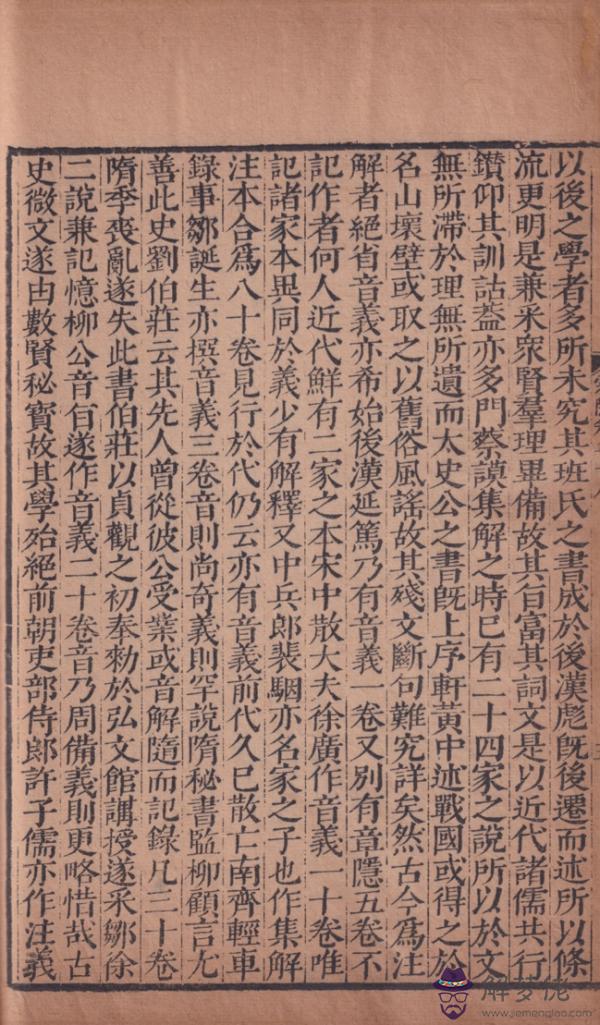 以後之學者多所未究其班氏之書成於後漢彪旣後遷而述所以條
流更明是兼采衆賢羣理畢備故其旨富其詞文是以近代諸儒共行
鑽仰其訓詁蓋亦多門蔡謨集解之時已有二十四家之說所以於文
無所滯於理無所遺而太史公之書旣上序軒黃中述戰國或得之於
名山壞壁或取之以舊俗風謠故其殘文斷句難究詳矣然古今爲注
解者絕省音義亦希始後漢延篤乃有音義一卷又別有章隱五卷不
記作者何人近代鮮有二家之本宋中散大夫徐廣作音義一十卷唯
記諸家本異同於義少有解釋又中兵郎裴駰亦名家之子也作集解
注本合爲八十卷見行於代仍云亦有音義前代久已散亡南齊輕車
錄事鄒誕生亦撰音義三卷音則尚奇義則罕說隋秘書監柳顧言尤
善此史劉伯莊云其先人曾從彼公受業或音解隨而記錄凡三十卷
隋季喪亂遂失此書伯莊以貞觀之初奉勑於弘文館講授遂采鄒徐
二說兼記憶柳公音旨遂作音義二十卷音乃周備義則更略惜哉古
史微文遂由數賢秘寳故其學殆絕前朝吏部侍郎許子儒亦作注義
解梦佬
www.jiemenglao.com